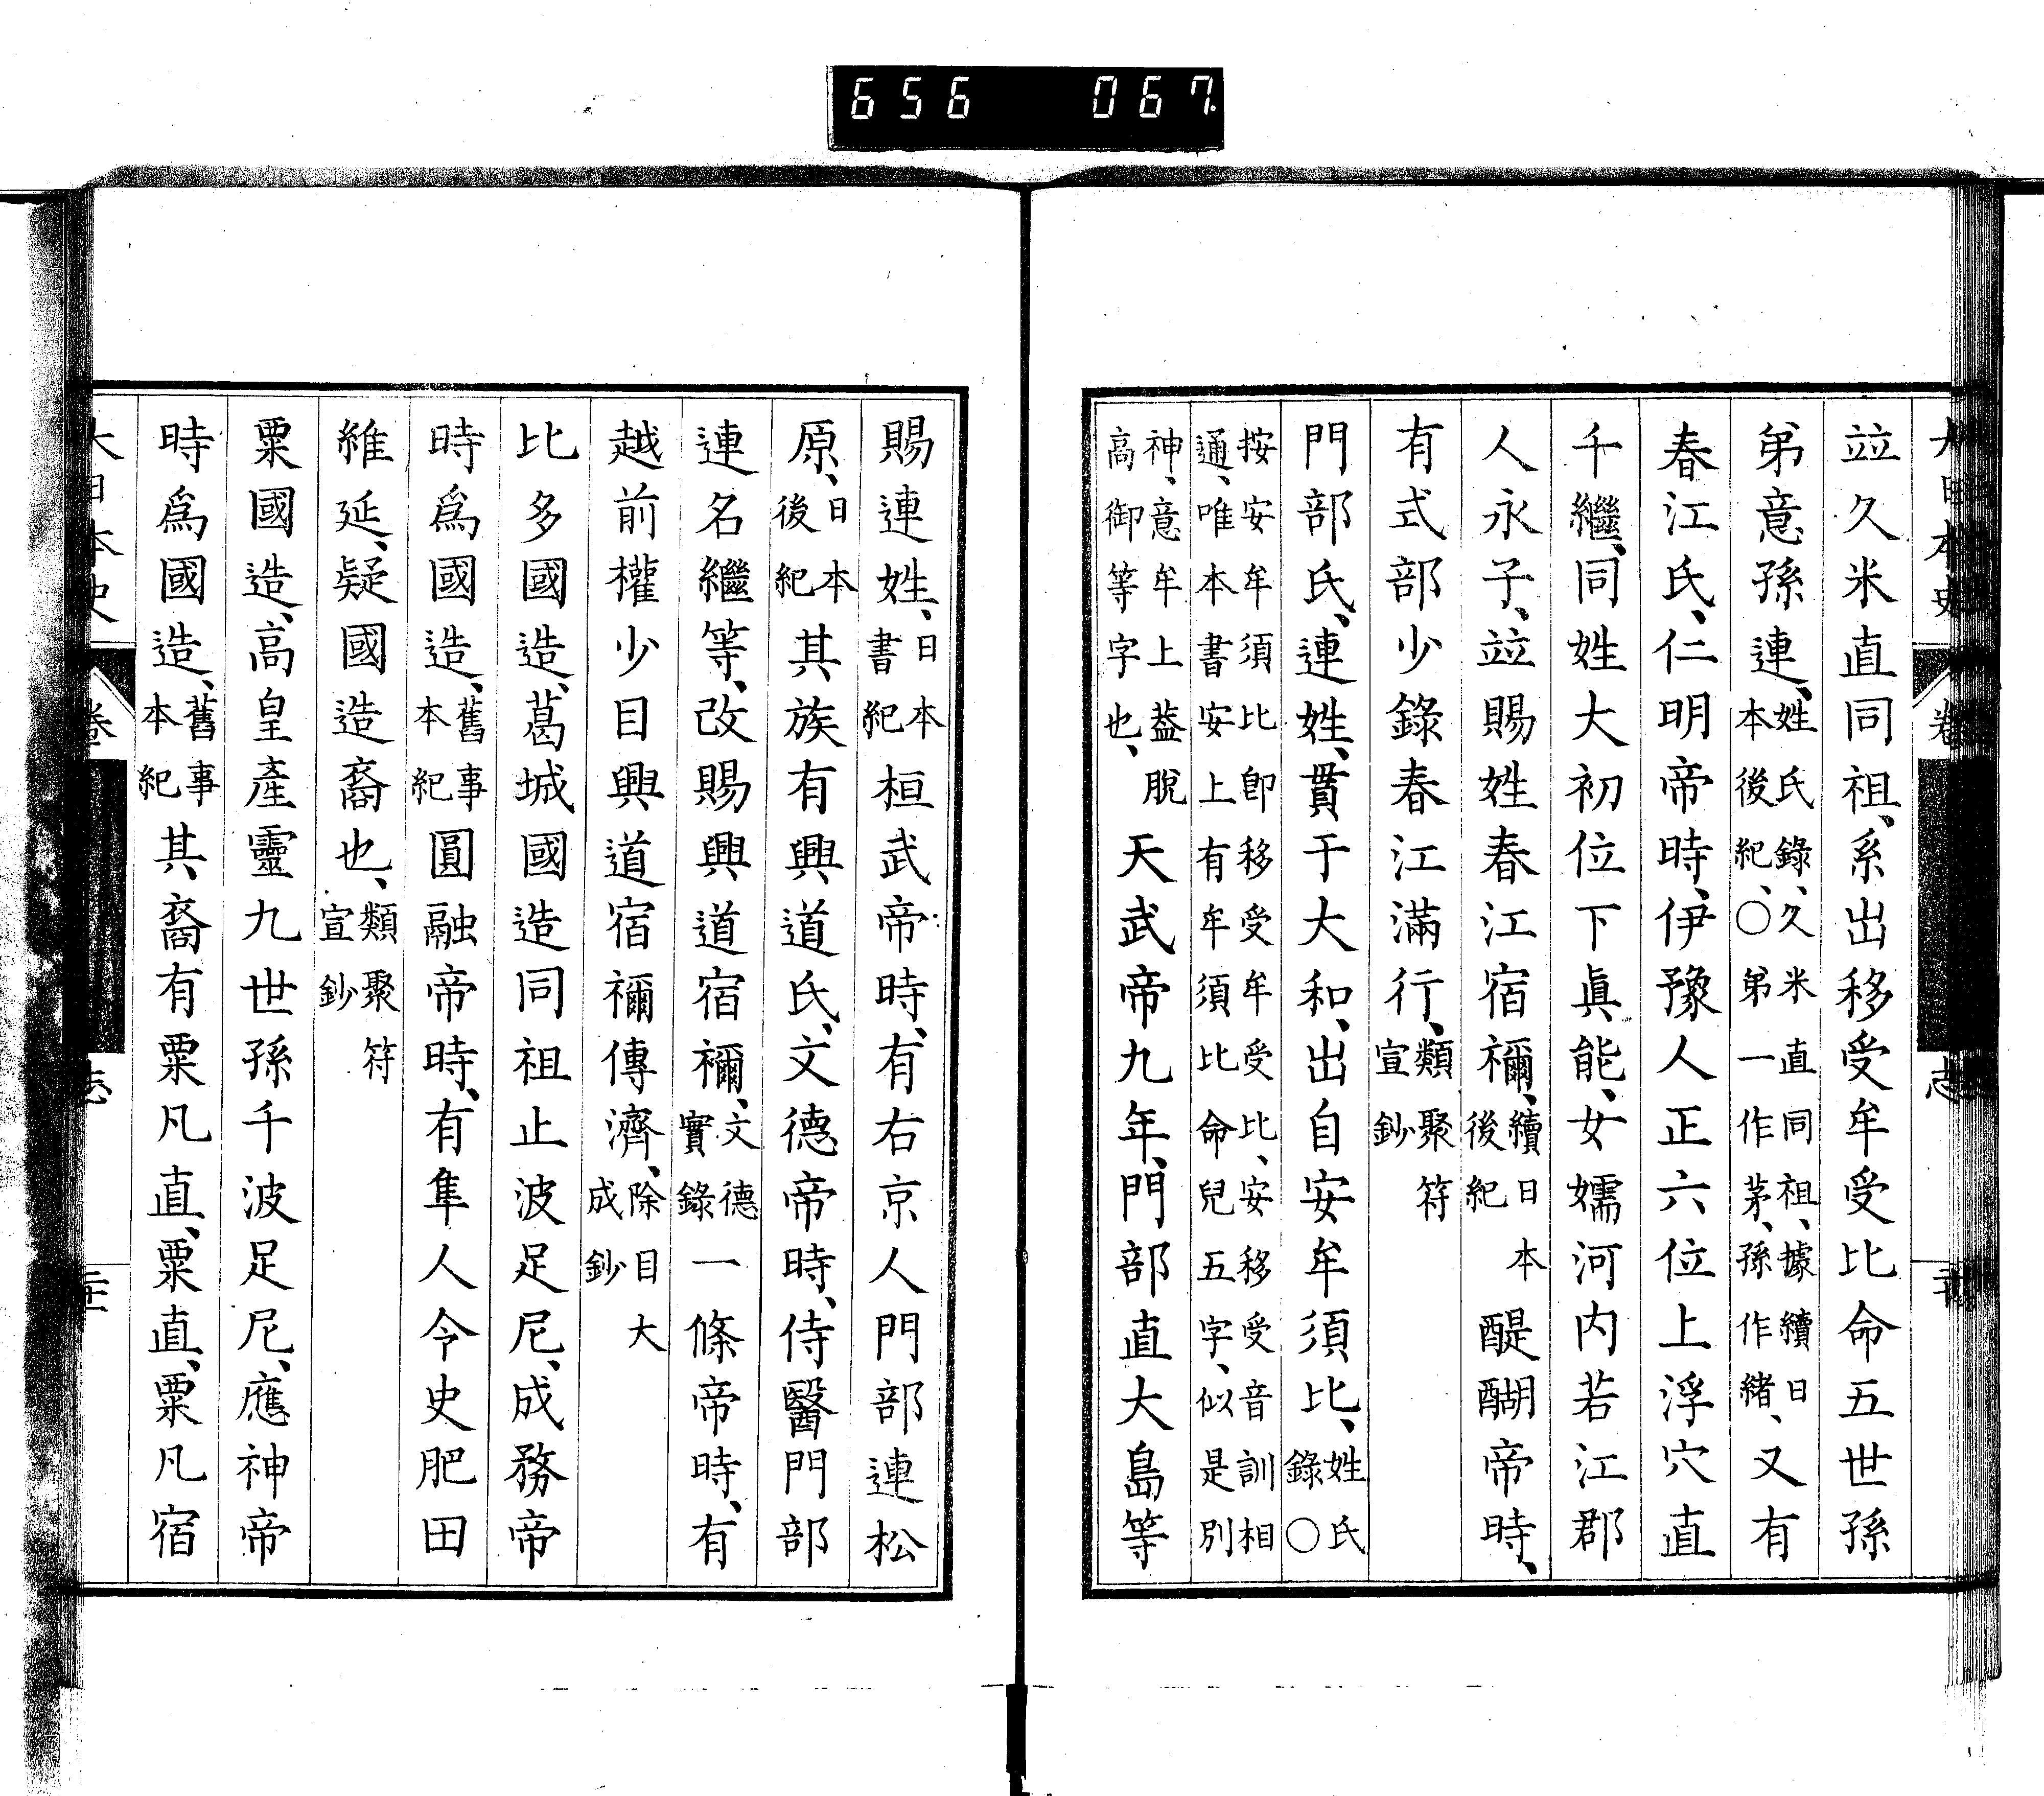 656 067
竝久米直同祖、系出移受牟受比命五世孫
弟意孫連、姓氏錄、久米直同祖、據續日本後紀、〇弟一作茅、孫作緒、又有
春江氏、仁明帝時、伊豫人正六位上浮穴直
千繼、同姓大初位下眞能、女嬬河内若江郡
人永子、竝賜姓春江宿禰、續日本後紀醍醐帝時、
有式部少錄春江滿行、類聚符宣鈔
門部氏、連姓、貫于大和、出自安牟須比、姓氏錄〇
按安牟須比卽移受牟受比、安移受音訓相
通、唯本書安上有牟須比命兒五字、似是別
神、意牟上葢脫高御等字也、天武帝九年、門部直大島等
賜連姓、日本書紀桓武帝時、有右京人門部連松
原、日本後紀其族有興道氏、文德帝時、侍醫門部
連名繼等、改賜興道宿禰、文德實錄一條帝時、有
越前權少目興道宿禰傳濟、除目大成鈔
比多國造、葛城國造同祖止波足尼、成務帝
時爲國造、舊事本紀圓融帝時、有隼人令史肥田
維延、疑國造裔也、類聚符宣鈔
粟國造、高皇產靈九世孫千波足尼、應神帝
時爲國造、舊事本紀其裔有粟凡直、粟直、粟凡宿
大日本史
卷
志